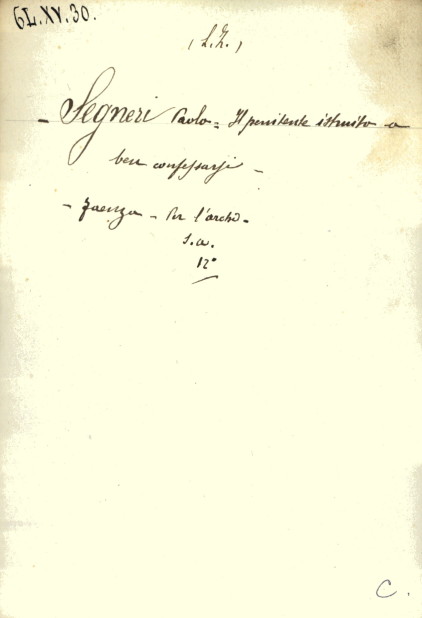 6L.XV.30.
(L.Z.)
- Segneri Paolo = Il penitente istruito a
ben confessarsi -
- Faenza - Per l'archi -
s.a.
12°
C.